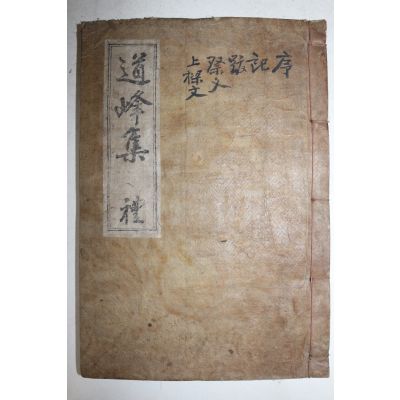 道峰集 禮
序
記
跋
祭文
上樑文